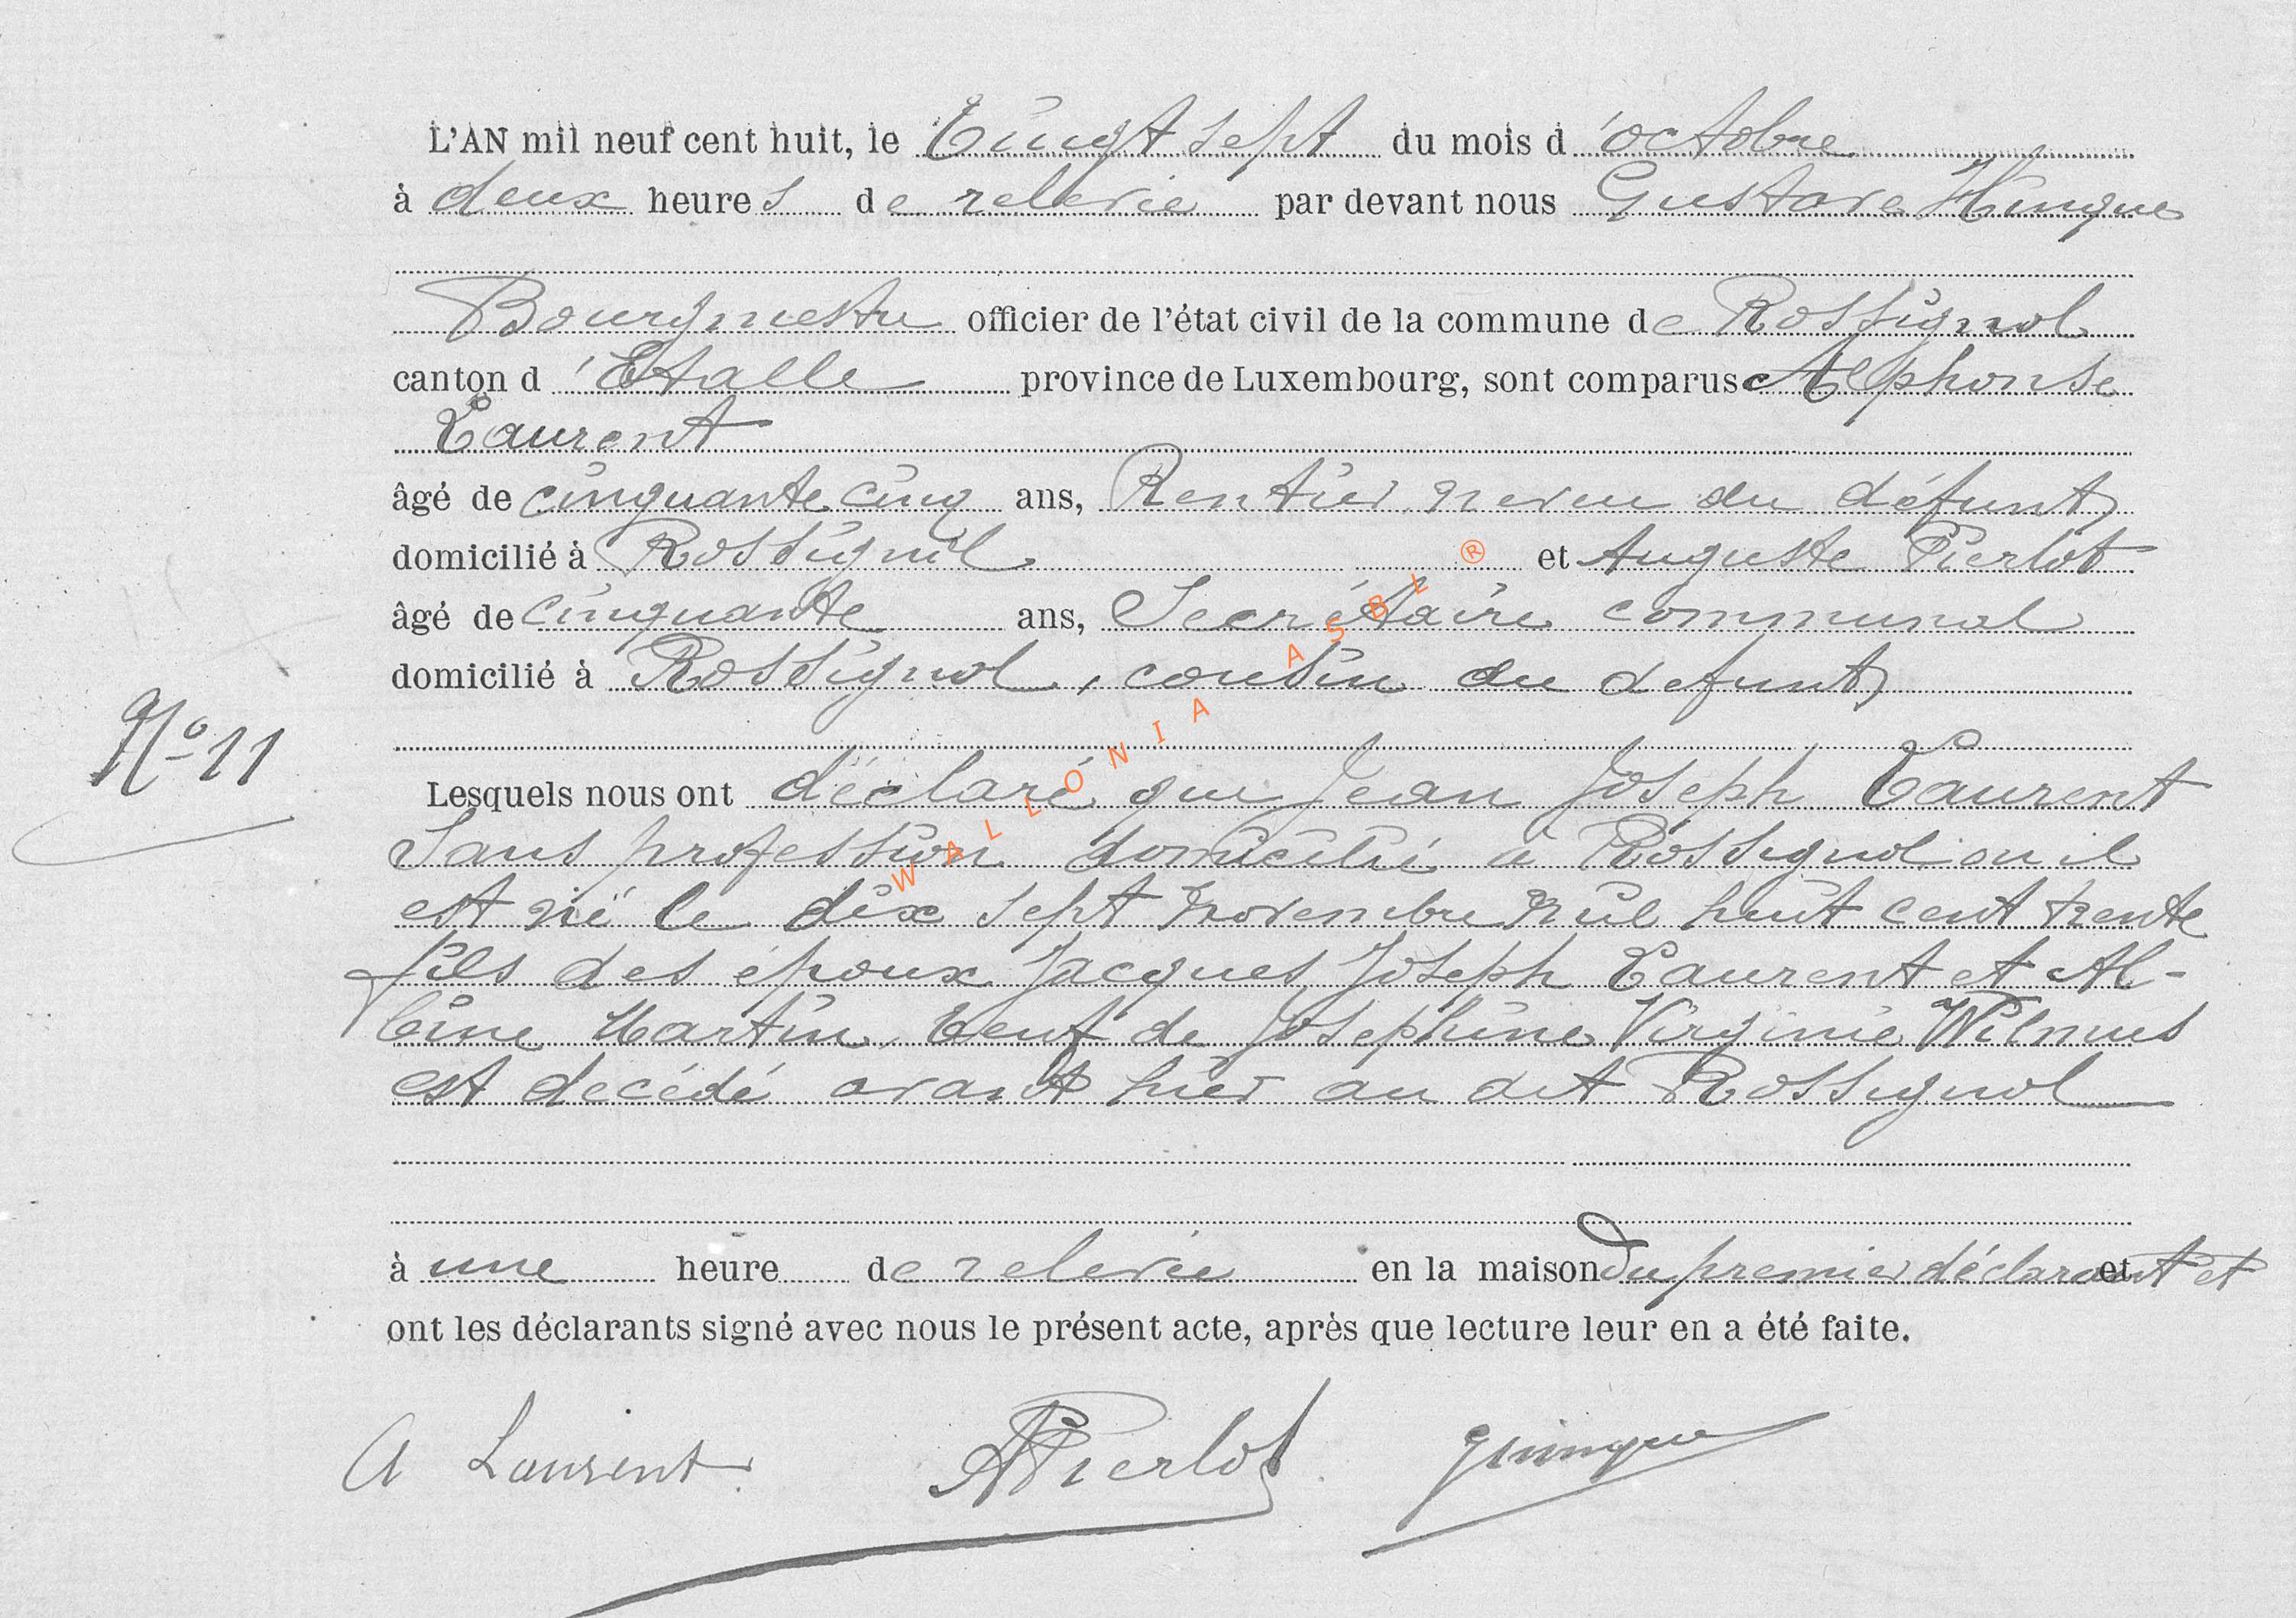 L'AN mil neuf cent huit, le Vingt sept du mois d'octobre
à deux heures de relevée par devant nous Gustave Hinque
Bourgmestre officier de l'état civil de la commune de Rossignol
canton d'Etalle province de Luxembourg, sont comparus Alphonse
Laurent
âgé de cinquante cinq ans, Rentier neveu du défunt
domicilié à Rossignol et Auguste Pierlot
âgé de cinquante ans, Secrétaire communal
domicilié à Rossignol, cousin du defunt
No 11
Lesquels nous ont déclaré que Jean Joseph Laurent
Sans profession domicilié à Rossignol ou il
est né le dix sept Novembre Mil huit cent trente
fils des époux Jacques Joseph Laurent et Al-
bine Martin, veuf de Joséphine Virginie Wilmus
est decédé avant hier au dit Rossignol
à une heure de relevée en la maison du premier déclarant et et
ont les déclarants signé avec nous le présent acte, après que lecture leur en a été faite.
A Laurent APierlot GHinque
WALLONIA ASBL ®